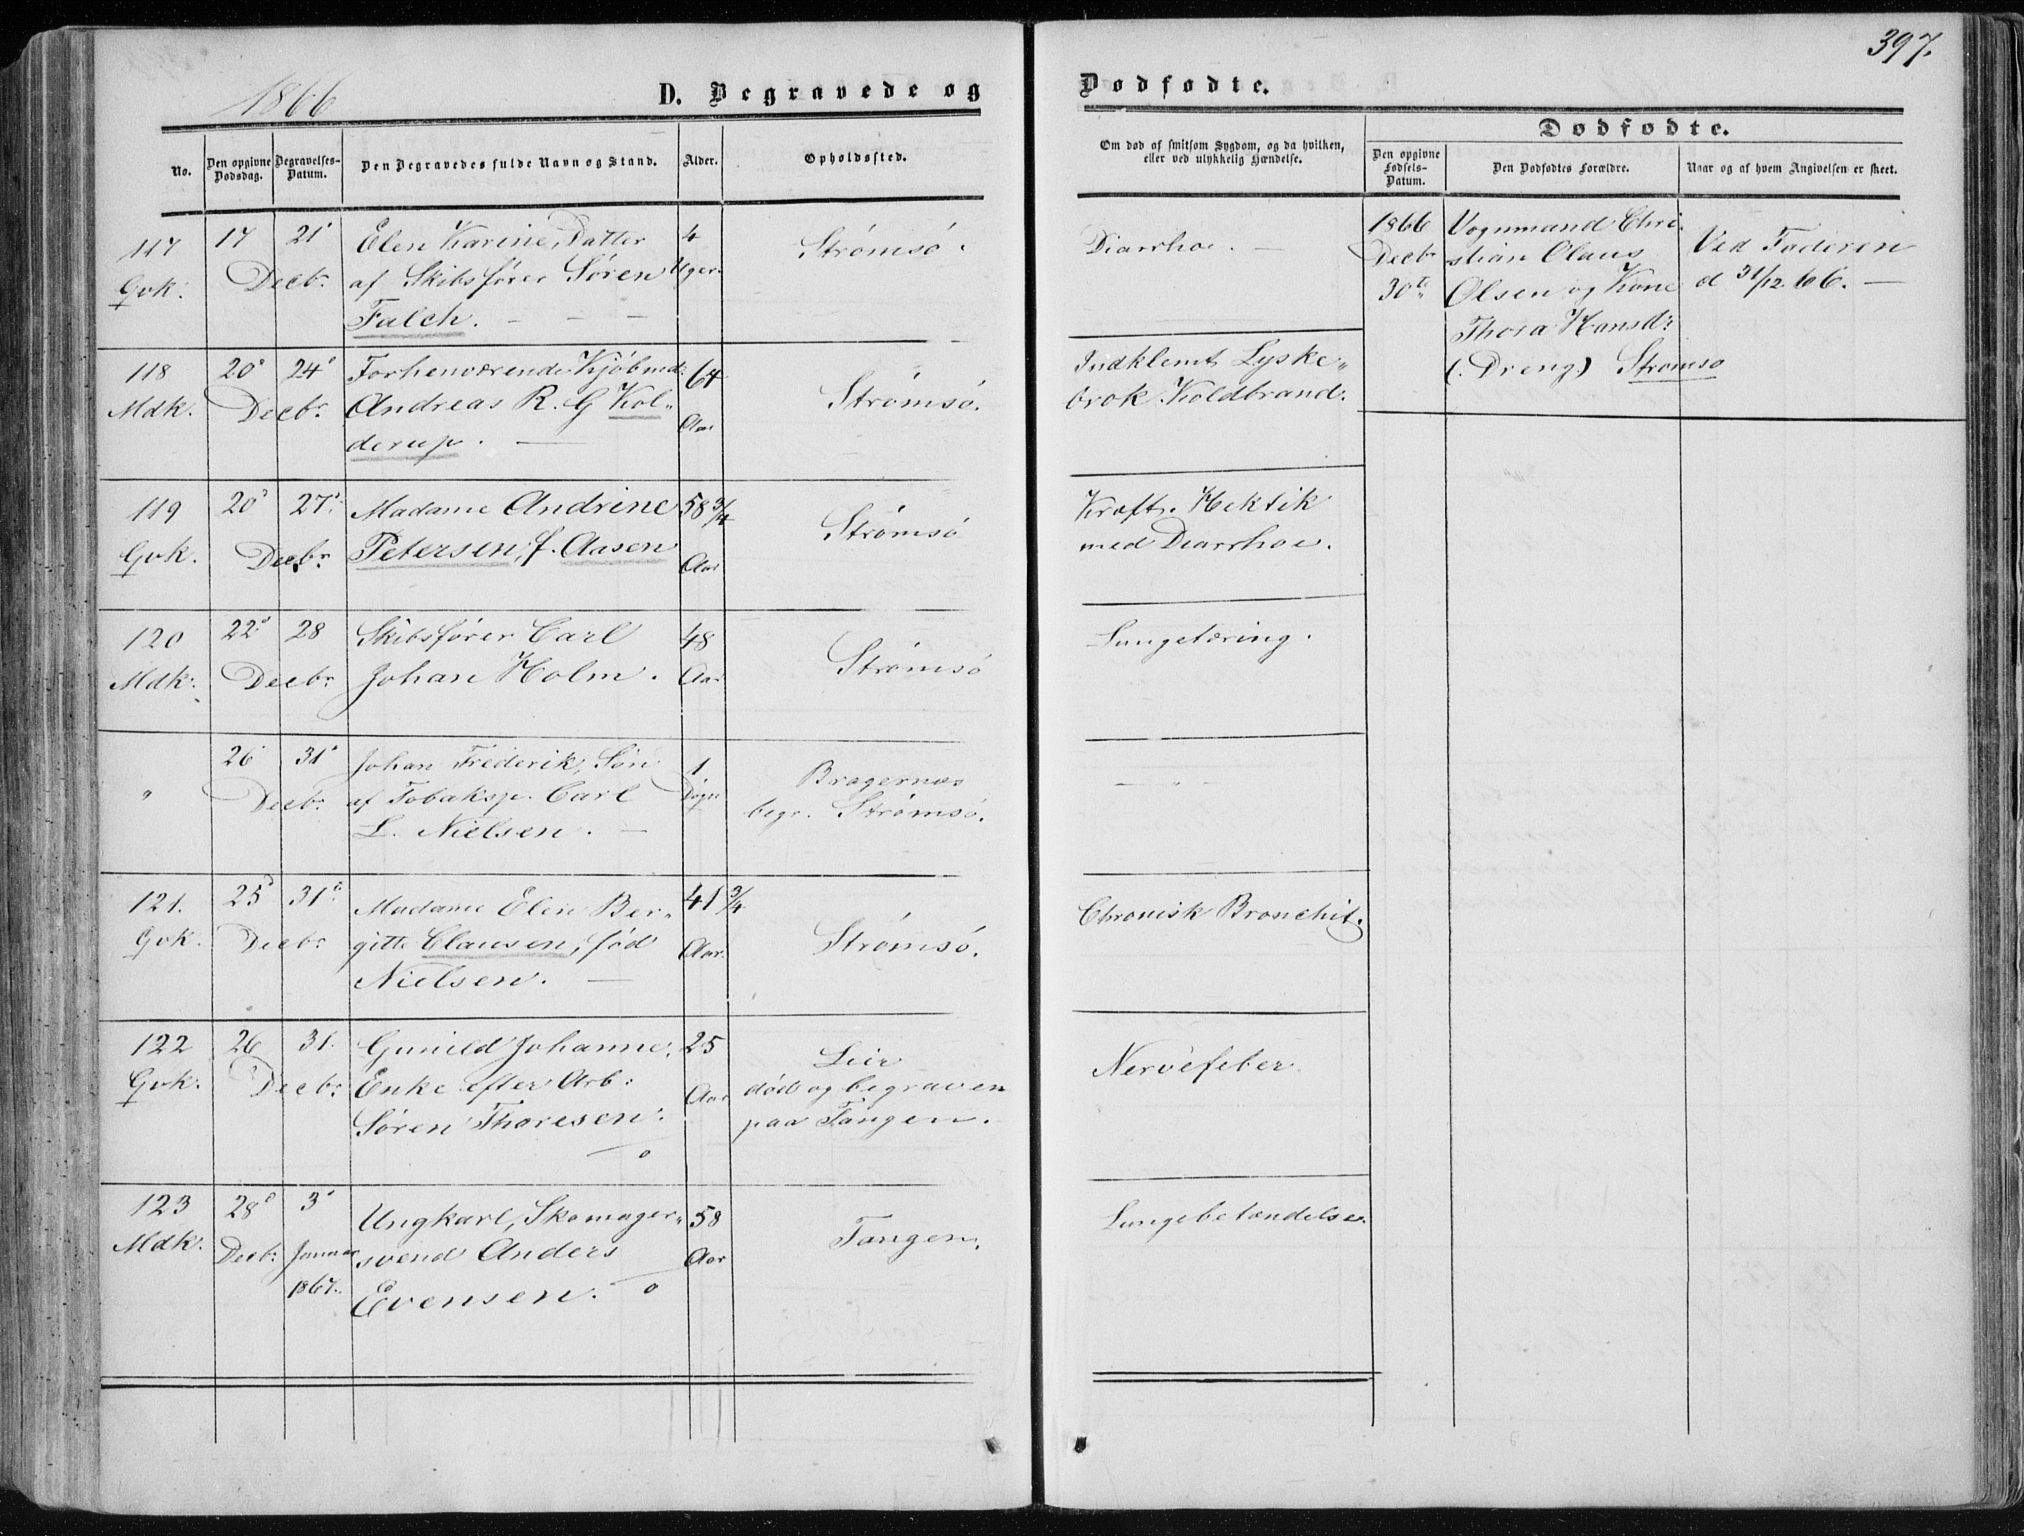 397.
1866
D. Begravede og Dødfødte.
No.
Den opgivne Dødsdag.
Begravelses-Datum.
Den Begravedes fulde Navn og Stand.
Alder.
Opholdssted.
Om død af smitsom Sygdom, og da hvilken, eller ved ulykkelig Hændelse.
Dødfødte.
Den opgivne Fødsels-Datum.
Den Dødfødtes Forældre.
Naar og af hvem Angivelsen er skeet.
117 17 21 Elen Karine, Datter 4 Strømsö. Diarrhoe. —
Qvk. Decbr. af Skibsfører Søren Uger
Falch. — — —
118 20 24 Forhenværende Kjöbmd: 64 Strømsö. Indklemt Lyske-
Mdk. Decbr. Andreas R. G Kol- Aar brok Koldbrand.
derup. —
119 20 27 Madame Andrine 58 3/4 Strømsö Kraft. Hektik
Qvk. Decbr. Petersen, f. Aasen Aar med Diarrhoe.
120 22 28 Skibsfører Carl 48 Strømsö Lungetæring.
Mdk: Decbr. Johan Holm. Aar
" 26 31 Johan Frederik, Søn 1 Bragernæs — " —
Decbr. af Tobaksp. Carl Døgn begr. Strømsö.
L. Nielsen. —
121. 25 31 Madame Elen Ber- 41 3/4 Strømsö. Chronisk Bronchit.
Qvk. Decbr. gitte Clausen, född Aar.
Nielsen. —
122 26 31. Gunild Johanne, 25 Lier Nervefeber
Qvk. Decbr. Enke efter Arb: Aar död og begraven
Søren Thoresen. paa Tangen.
123 28 3 Ungkarl, Skomager- 58 Tangen. Lungebetændelse.
Mdk. Decbr. Januar svend Anders Aar
1867. Evensen.
1866 Vognmand Chri-
Decbr. stian Olaus Ved Faderen
30te Olsen og Kone d 31/12 66. —
Thora Hansd:
(: Dreng) Strømsö